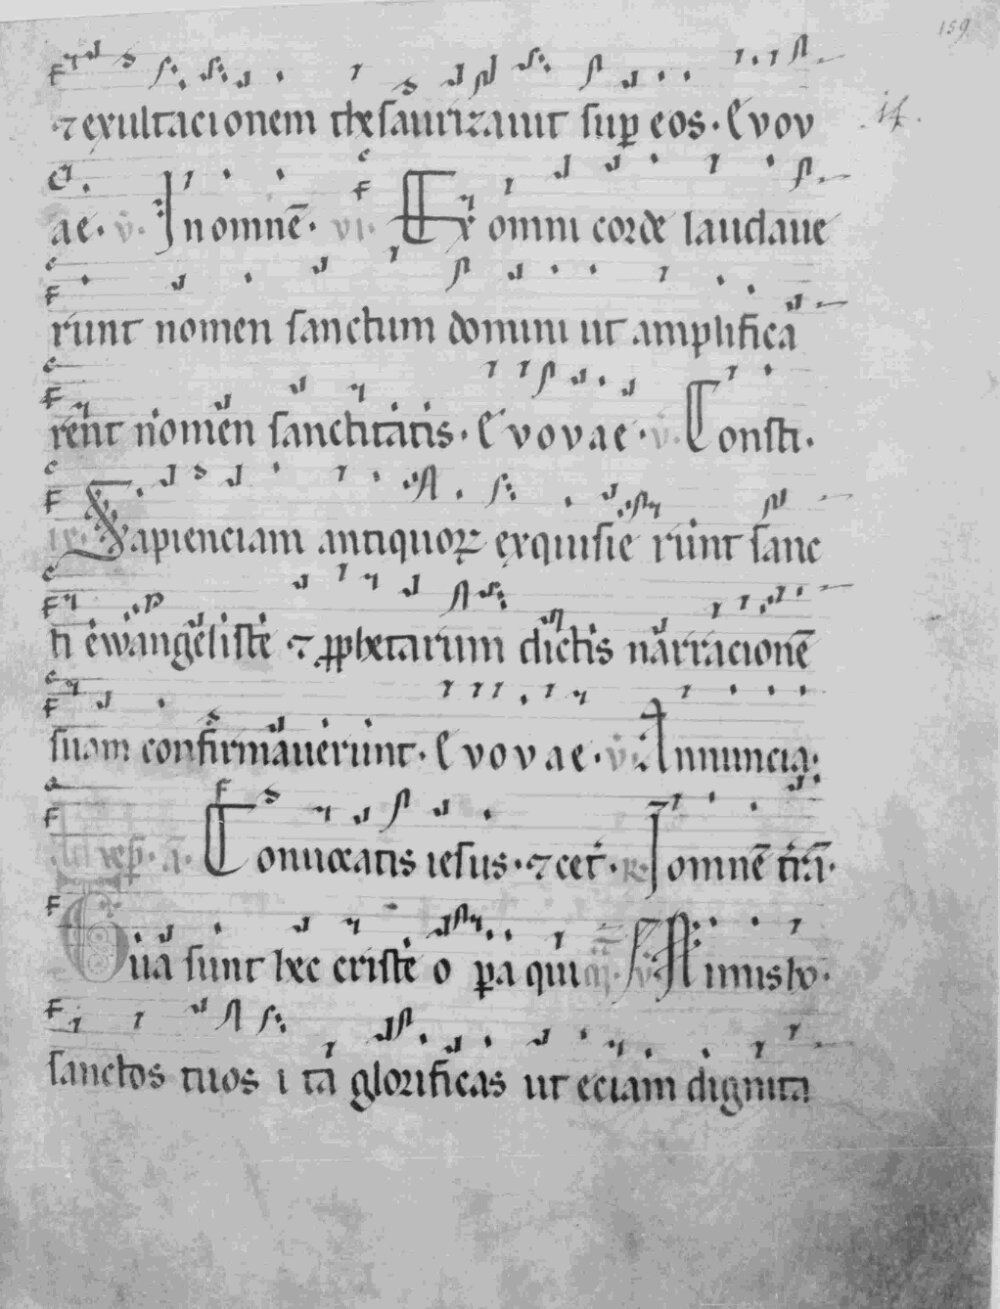 159
⁊ exultacionem thesaurizauit sup eos. Euou
14.
ae. v̄. Innomnē. vi. Ex omni corde laudaue
runt nomen sanctum domini ut amplifica
rent nomen sanctitatis. Euouae. v̄. Consti.
Sapienciam antiquoꝝ exquisie runt sanc
ti ewangeliste ⁊ ꝓphetarum dictis narracionē
suam confirmauerunt. Euouae. v̄. Annuncia.
Conuocatis iesus. ⁊ cet̄. R. Iomnē t̄rā.
Qua sunt hec criste o pa qui Nimis ho.
sanctos tuos i ta glorificas ut eciam dignita